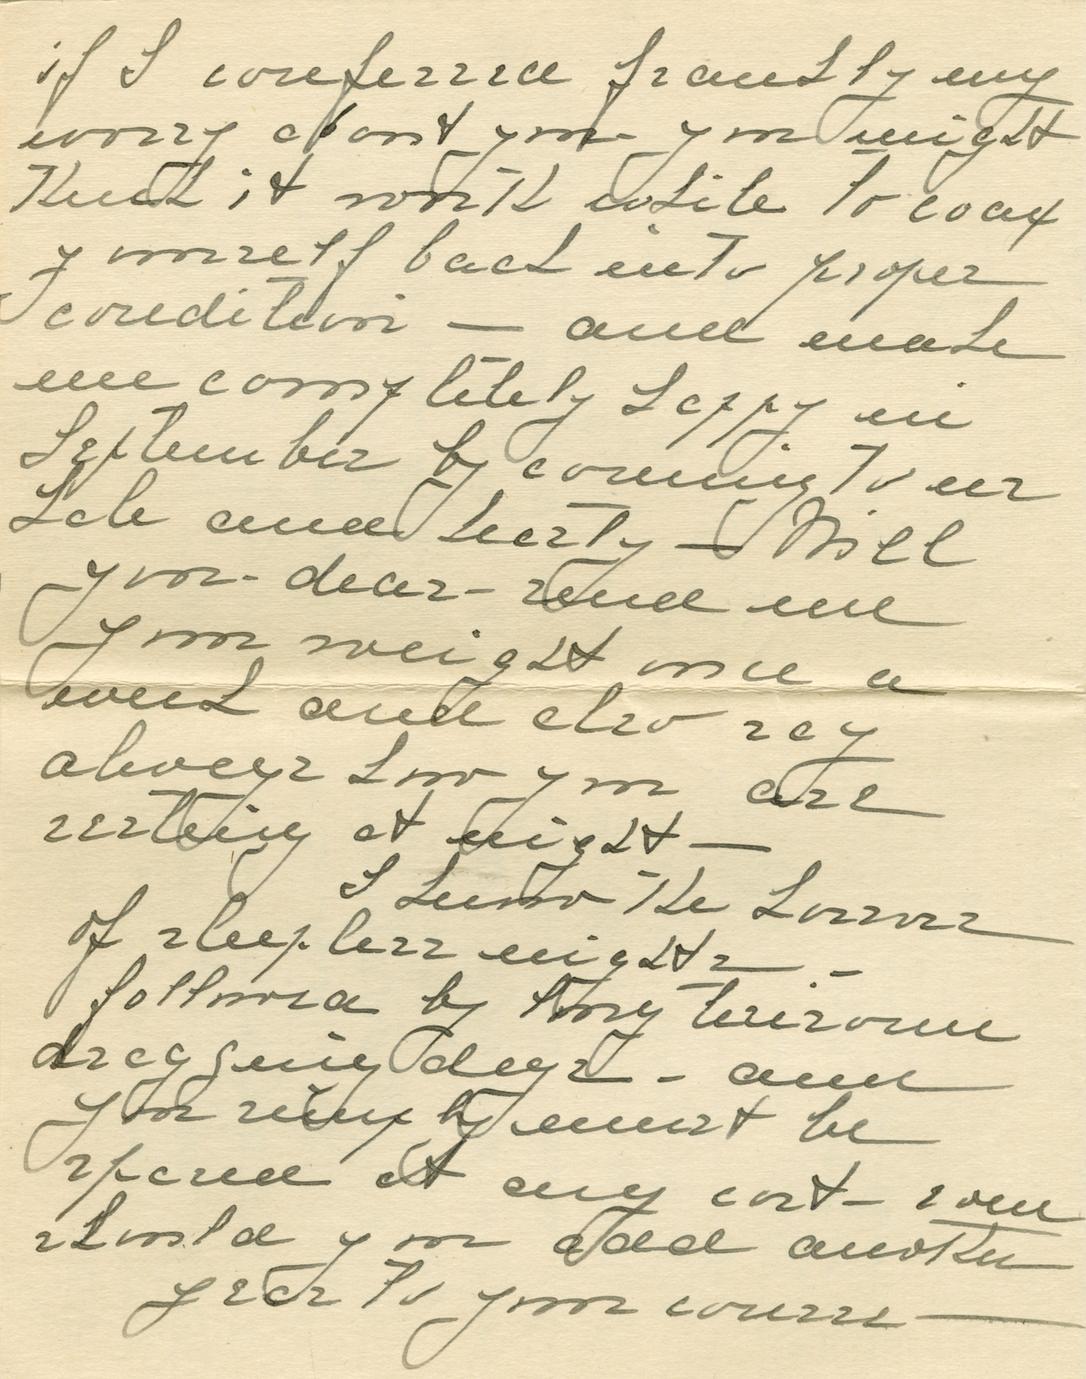 if I confessed frankly my
worry about you - you might
think it worth while to coax
yourself back into proper
condition — and make
me completely happy in
September by coming to me
hale and hearty — Will
you - dear - send me
your weight once a
week and also say
always how you are
resting at night —
I know the horror
of sleepless nights -
followed by long tiresome
dragging days - and
you simply must be
spared at any cost - even
should you add another
year to your course —